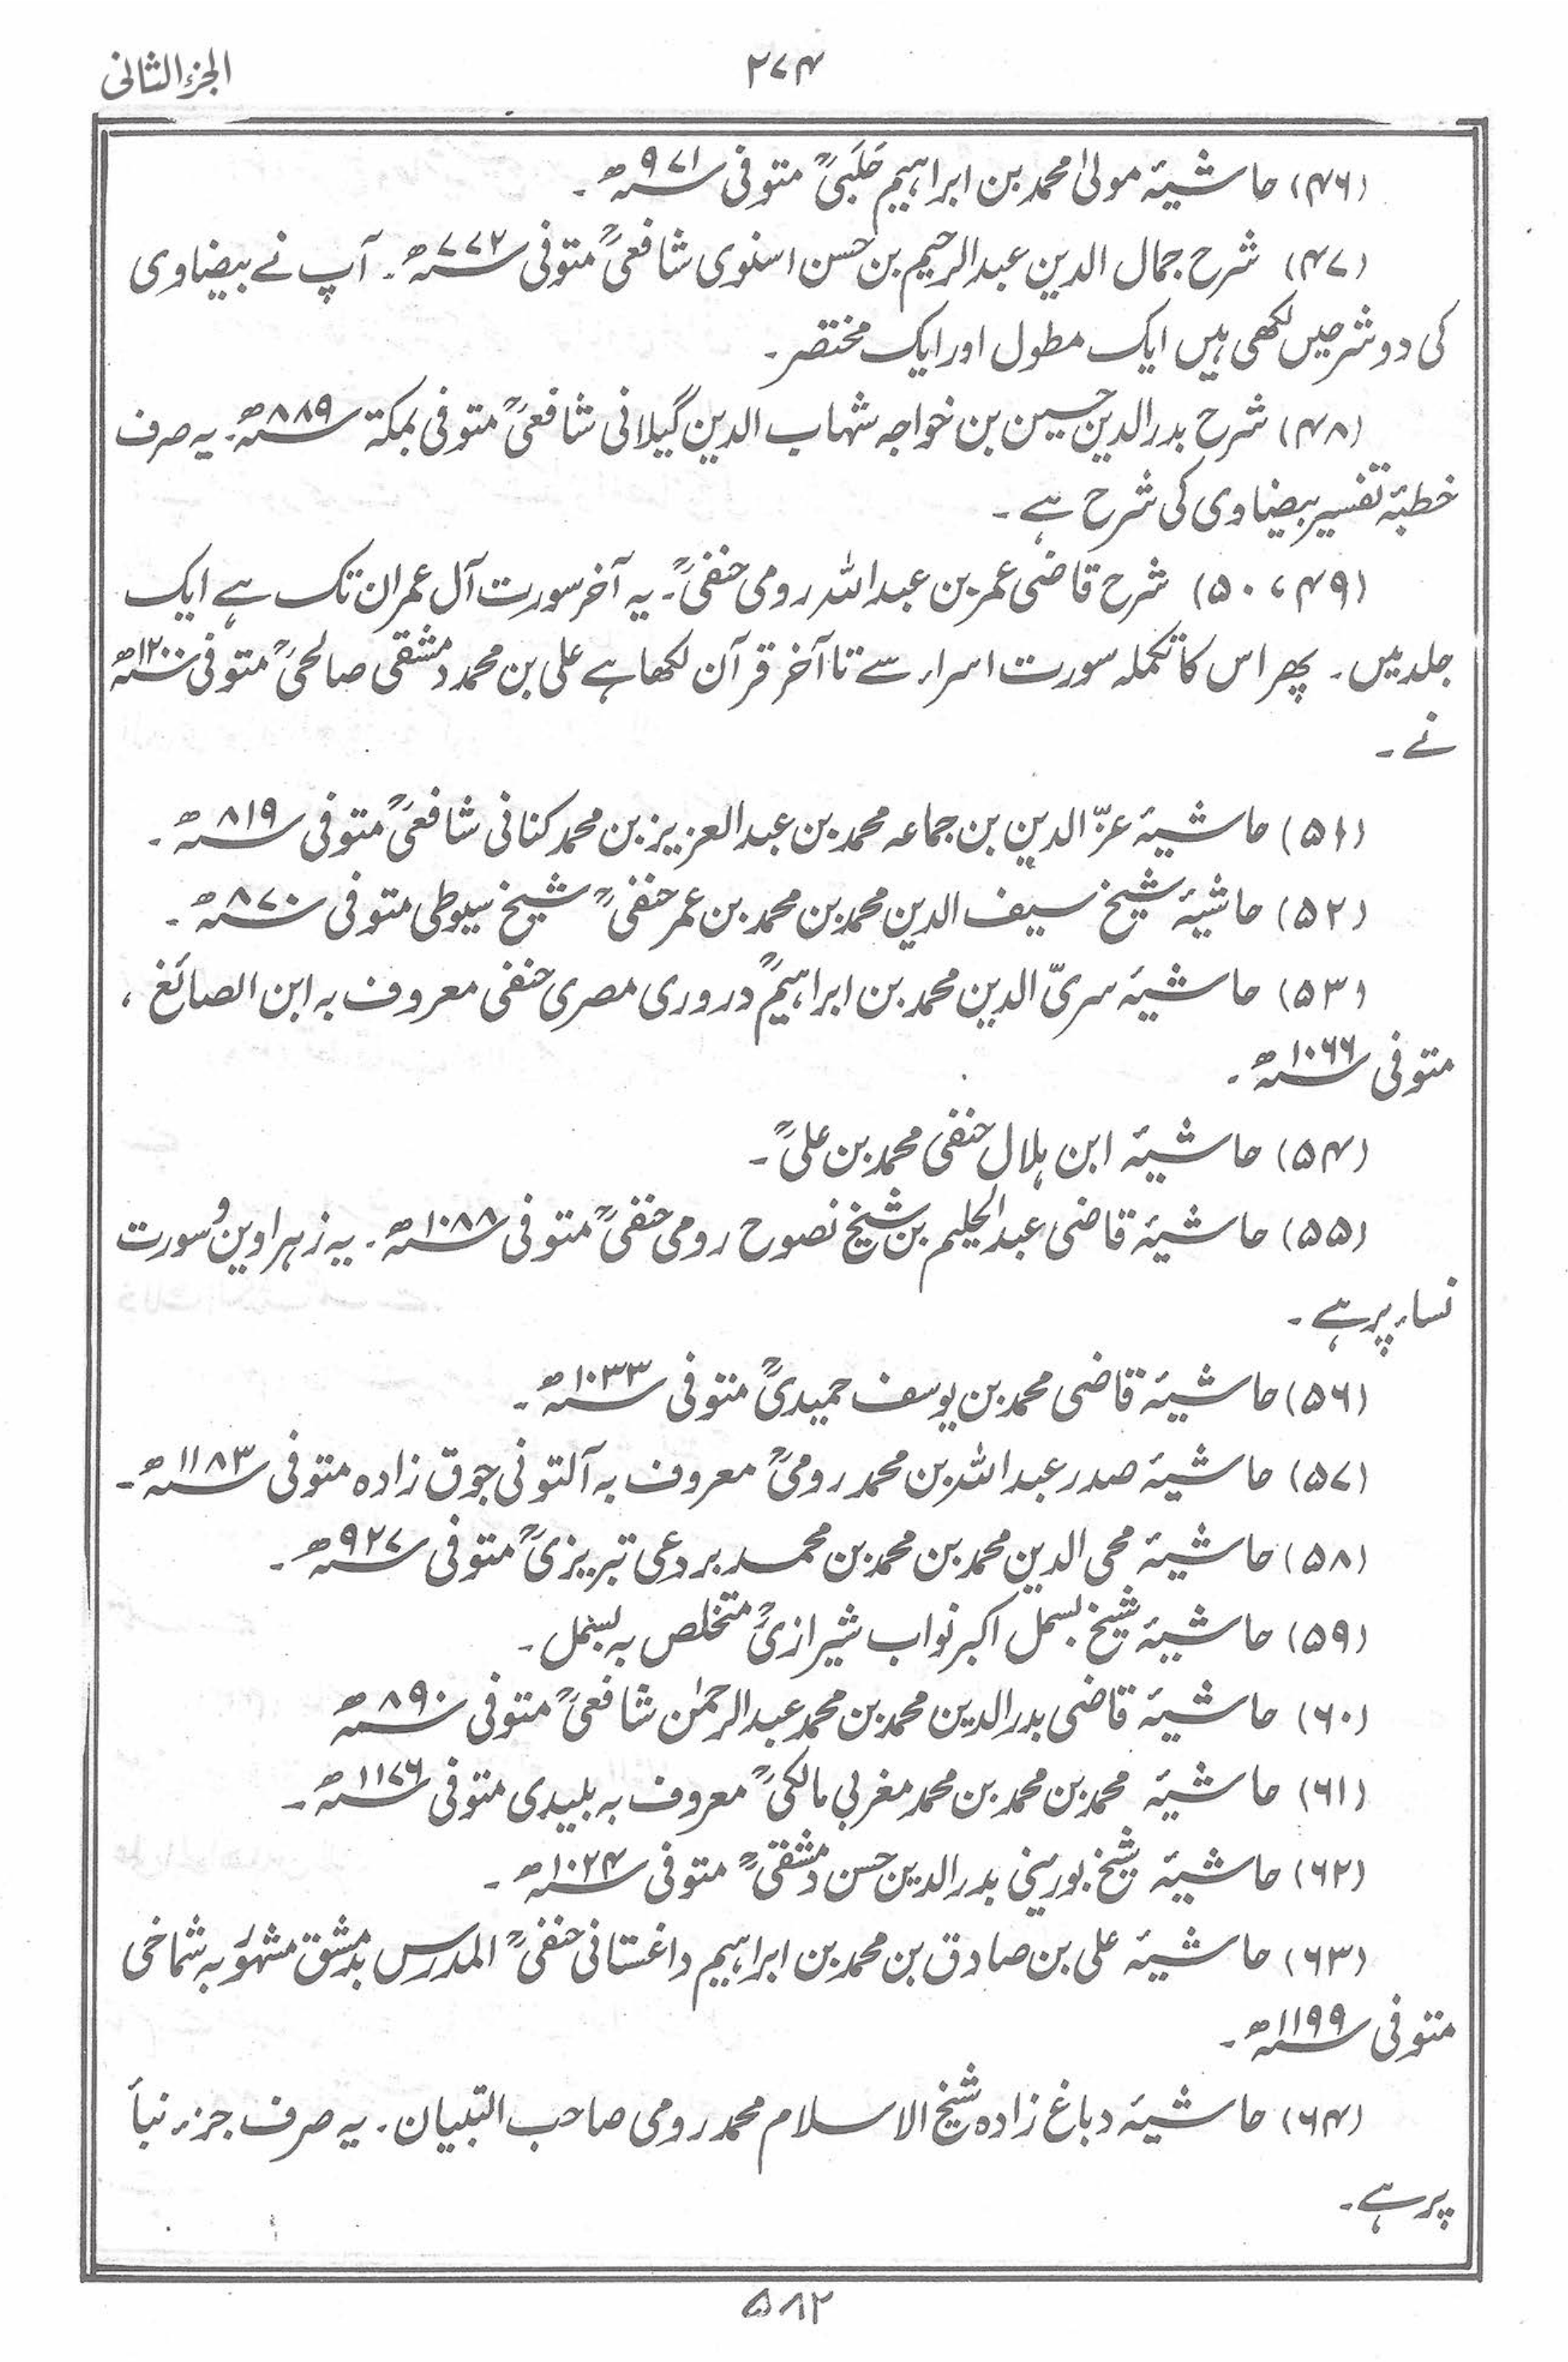 الجزء الثانی
۲۷۴
(۴۶) حاشیۂ مولیٰ محمد بن ابراہیم حَلَبیؒ متوفی ۹۷۱ھ۔
(۴۷) شرح جمال الدین عبدالرحیم بن حسن اسنوی شافعیؒ متوفی ۷۷۲ھ۔ آپ نے بیضاوی
کی دو شرحیں لکھی ہیں ایک مطول اور ایک مختصر۔
(۴۸) شرح بدرالدین حسین بن خواجہ شہاب الدین گیلانی شافعیؒ متوفی بمکۃ ۸۸۹ھ۔ یہ صرف
خطبۂ تفسیر بیضاوی کی شرح ہے۔
(۴۹، ۵۰) شرح قاضی عمر بن عبداللہ رومی حنفیؒ۔ یہ آخر سورت آل عمران تک ہے ایک
جلد میں۔ پھر اس کا تکملہ سورت اسراء سے تا آخر قرآن لکھا ہے علی بن محمد دمشقی صالحیؒ متوفی ۱۲۰۰ھ
نے۔
(۵۱) حاشیۂ عزّ الدین بن جماعہ محمد بن عبدالعزیز بن محمد کنانی شافعیؒ متوفی ۸۱۹ھ۔
(۵۲) حاشیۂ شیخ سیف الدین محمد بن محمد بن عمر حنفیؒ شیخ سیوطی متوفی ۸۷۰ھ۔
(۵۳) حاشیۂ سریّ الدین محمد بن ابراہیمؒ دروری مصری حنفی معروف بہ ابن الصائغ،
متوفی ۱۰۶۶ھ۔
(۵۴) حاشیۂ ابن ہلال حنفی محمد بن علیؒ۔
(۵۵) حاشیۂ قاضی عبدالحلیم بن شیخ نصوح رومی حنفیؒ متوفی ۱۰۸۸ھ۔ یہ زہراوین و سورت
نساء پر ہے۔
(۵۶) حاشیۂ قاضی محمد بن یوسف حمیدیؒ متوفی ۱۰۳۳ھ۔
(۵۷) حاشیۂ صدر عبداللہ بن محمد رومیؒ معروف بہ آلتونی جوق زادہ متوفی ۱۱۸۳ھ۔
(۵۸) حاشیۂ محی الدین محمد بن محمد بن محمد بردعی تبریزیؒ متوفی ۹۲۷ھ۔
(۵۹) حاشیۂ شیخ بسمل اکبر نواب شیرازیؒ متخلص بہ بسمل۔
(۶۰) حاشیۂ قاضی بدرالدین محمد بن محمد عبدالرحمٰن شافعیؒ متوفی ۸۹۰ھ
(۶۱) حاشیۂ محمد بن محمد بن محمد مغربی مالکیؒ معروف بہ بلیدی متوفی ۱۱۷۶ھ۔
(۶۲) حاشیۂ شیخ بورینی بدرالدین حسن دمشقیؒ متوفی ۱۰۲۴ھ۔
(۶۳) حاشیۂ علی بن صادق بن محمد بن ابراہیم داغستانی حنفیؒ المدرس بدمشق مشہور بہ شماخی
متوفی ۱۱۹۹ھ۔
(۶۴) حاشیۂ دباغ زادہ شیخ الاسلام محمد رومی صاحب التبیان۔ یہ صرف جزء نبأ
پر ہے۔
۵۸۲